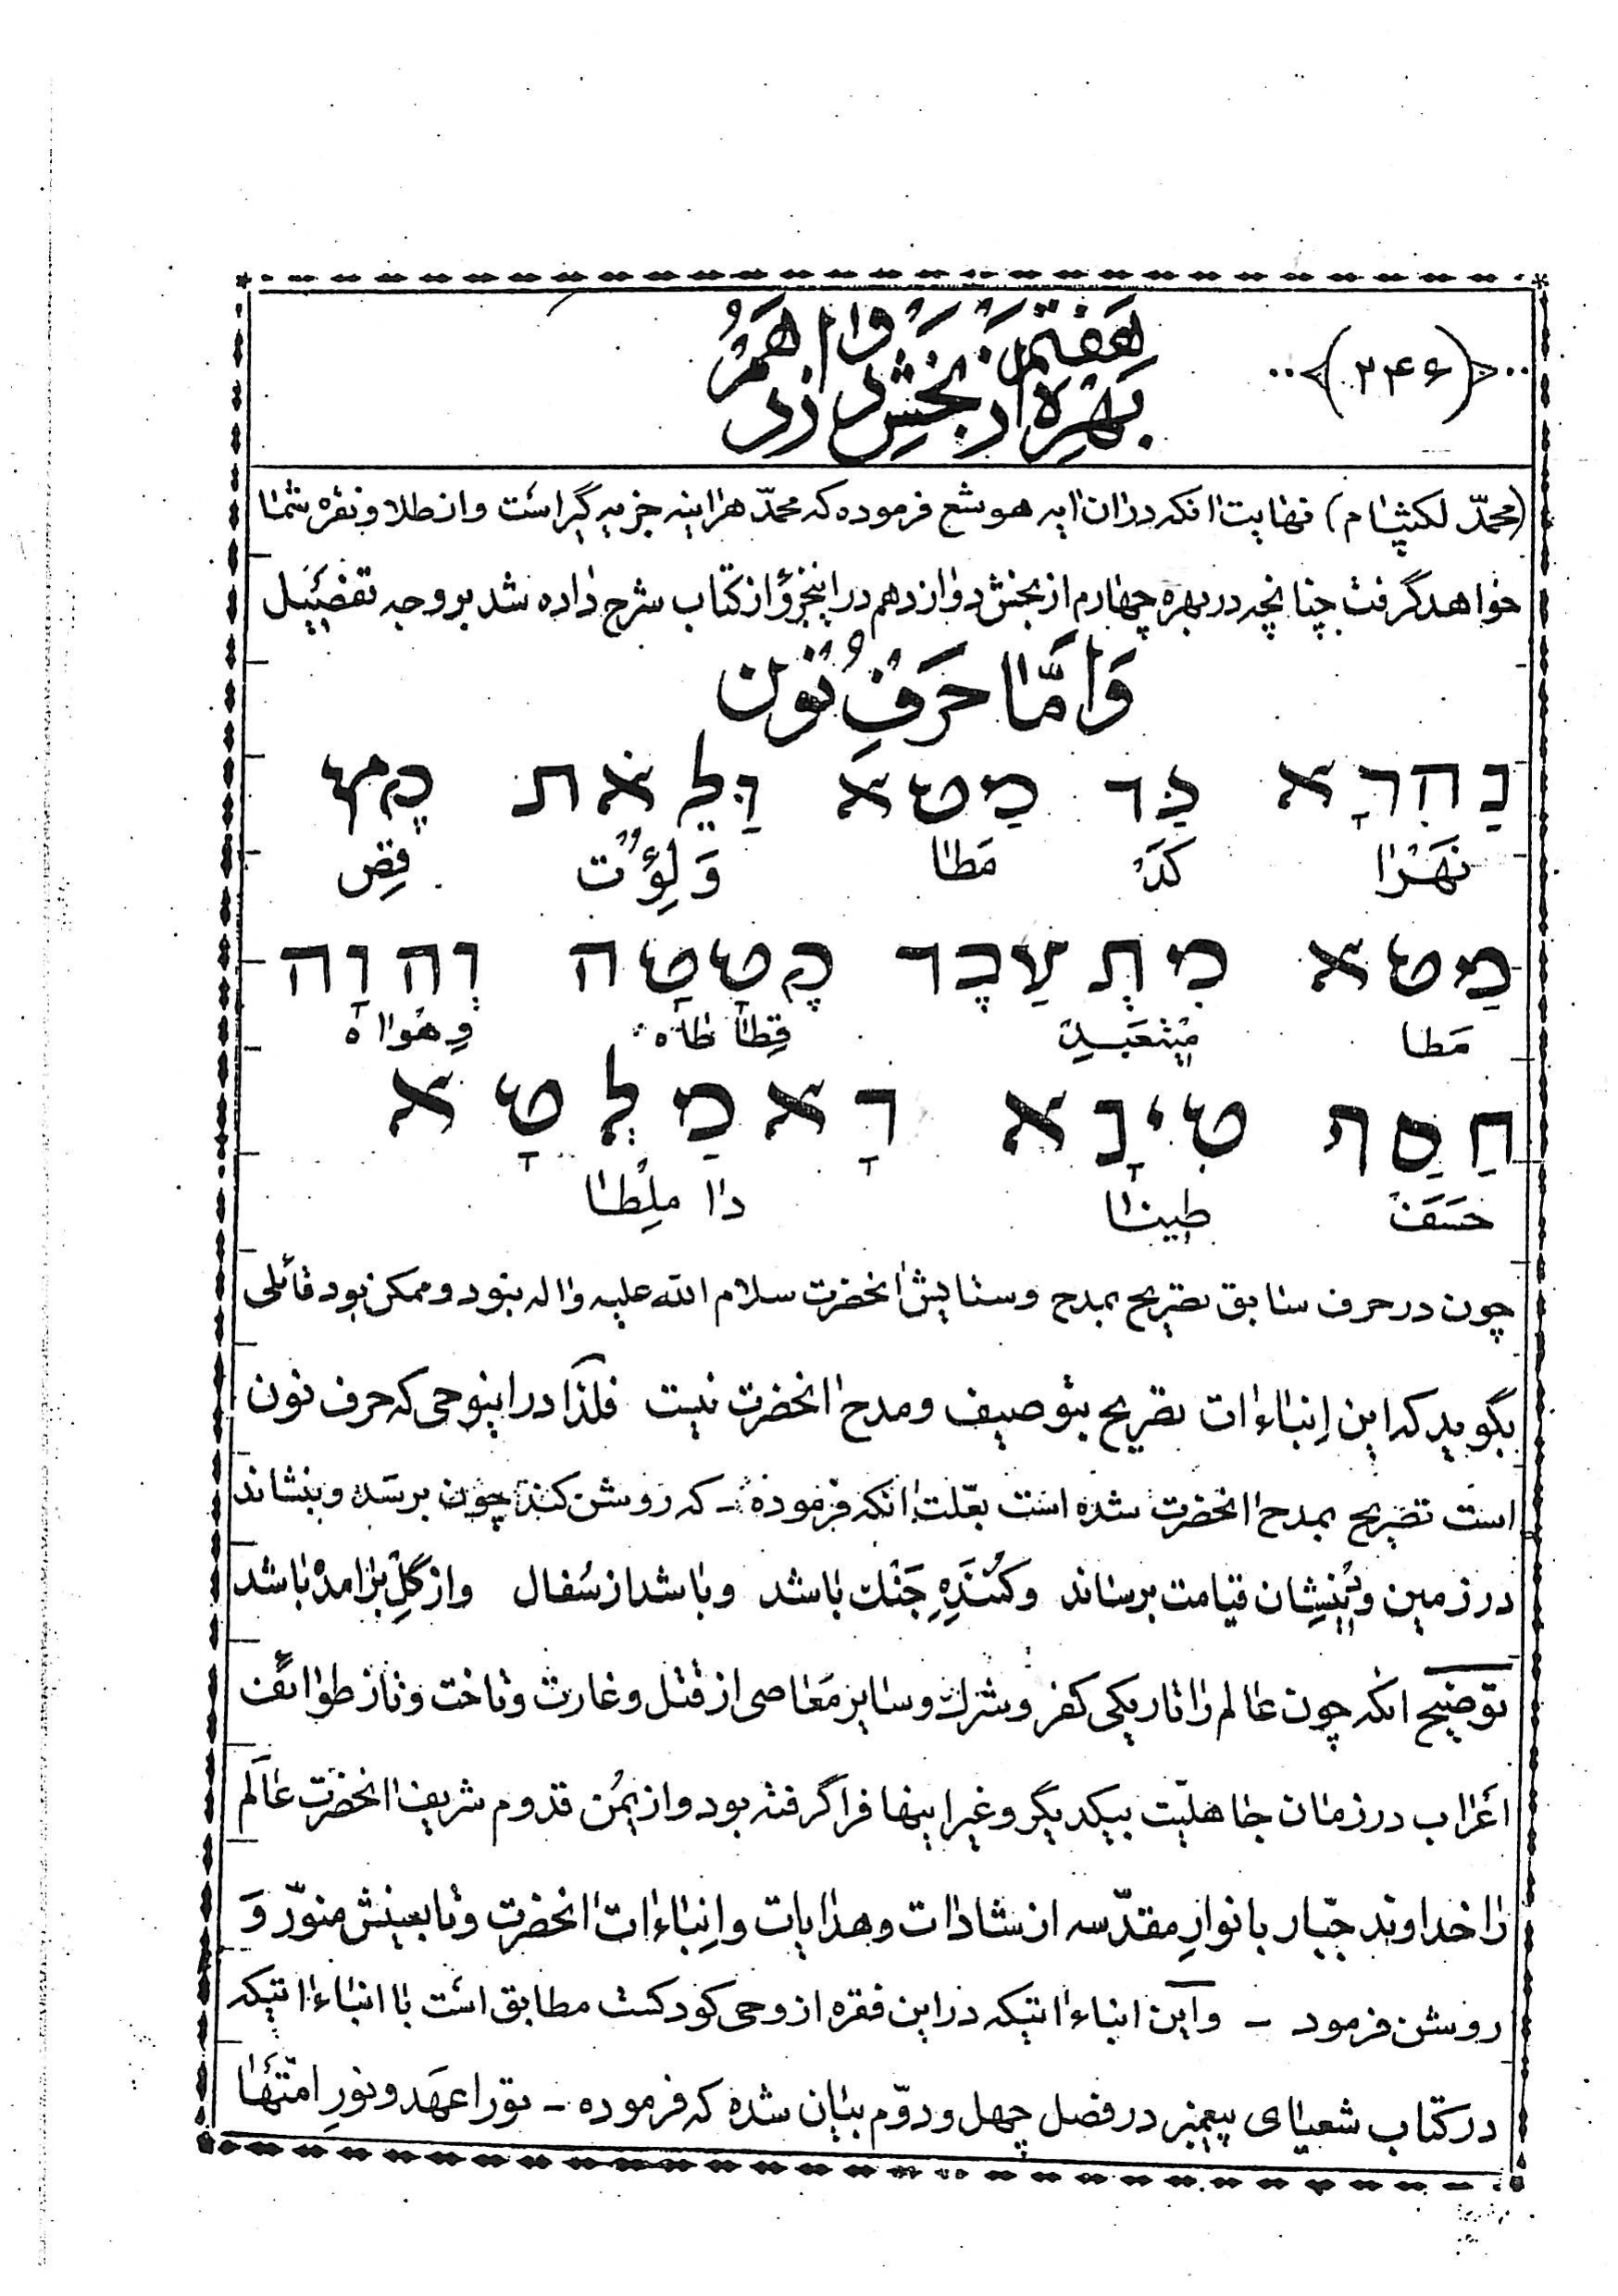 (۲۴۶)
بهره هفتم از بخش دوازدهم
(محمّد لکیشام) نهایت انکه در ان ایه هوشع فرموده که محمّد هراینه جزیه گیر است و از طلا و نقره شما
خواهد گرفت چنانچه در بهره چهارم از بخش دوازدهم در اینجزو از کتاب شرح داده شد بر وجه تفصیل
وَامَّا حَرفِ نُون
נַהְרָא כַּד מַטָא וַלֵאת קֵץ
نَهَرْا كَدّ مَطا وَلِؤُت قِص
מַטָא מִתְעַבֵד קְטָטָה וְהוָה
مَطا مِتعَبِد قِطاطاه وِهُوااه
חֲסַף טִינָא דָא מַלְטָא
حَسَف طینا دا ملِطا
چون در حرف سابق تصریح بمدح و ستایش انحضرت سلام الله علیه واله نبود و ممکن بود قائلی
بگوید که این اِنباءات تصریح بتوصیف و مدح انحضرت نیست فلذا در اینوحی که حرف نون
است تصریح بمدح انحضرت شده است بعّلت انکه فرموده - که روشن کند چون برسَد و بنشاند
در زمین و بُنِشان قیامت برساند و کُنَندِهِ جَنْك باشد و باشد از سُفال و از گِلِ برامده باشد
توضیح انکه چون عالم را تاریکی کفر و شرك و سایر مَعاصی از قتل و غارت و تاخت و تاز طوائف
اَعراب در زمان جاهلیّت بیکدیگر و غیر اینها فرا گرفته بود و از یُمن قدوم شریف انحضرت عالَم
را خداوند جبّار بانوارِ مقدّسه ارشادات و هدایات و اِنباءات انحضرت و تابعینش منوّر وَ
روشن فرمود - و این انباءاتیکه در این فقره از وحی کودکست مطابق است با انباءاتیکه
در کتاب شعیای پیغمبر در فصل چهل و دوّم بیان شده که فرموده - تورا عَهَد و نورِ امّتها